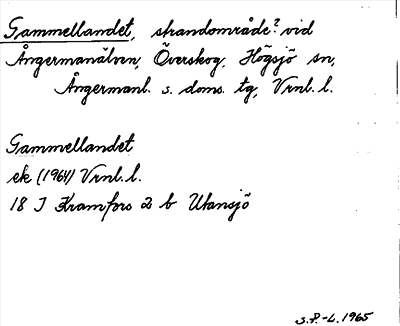 Gammellandet, strandområde? vid
Ångermanälven, Överskog, Högsjö sn,
Ångermanl. s. doms. tg, Vrnl. l.
Gammellandet
ek (1964) Vrnl. l.
18 J Kramfors 2 b Utansjö
S.P.-L. 1965